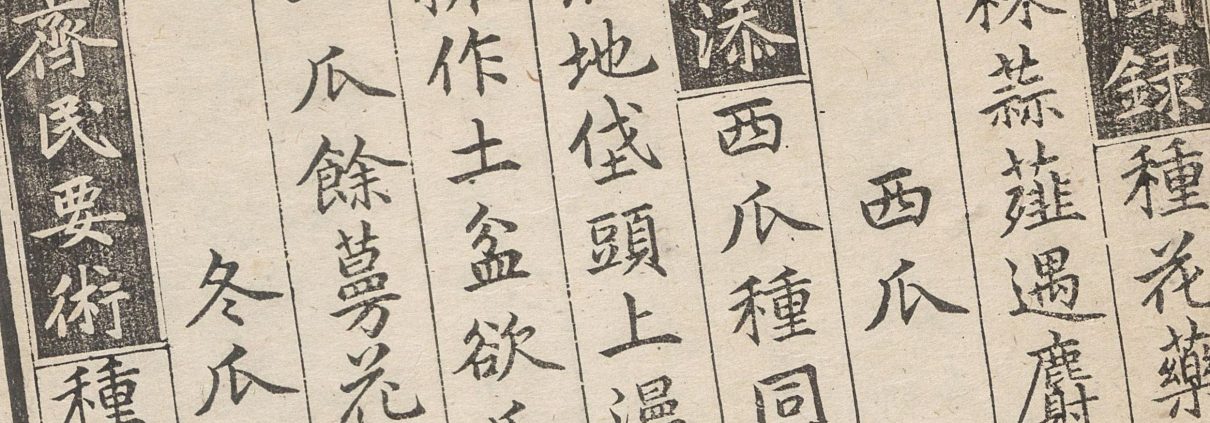 聞録種花藥
株蒜薤遇麝
西瓜
添西瓜種同
地垡頭上漫
作土盆欲
瓜餘蔓花
冬瓜
齊民要術種